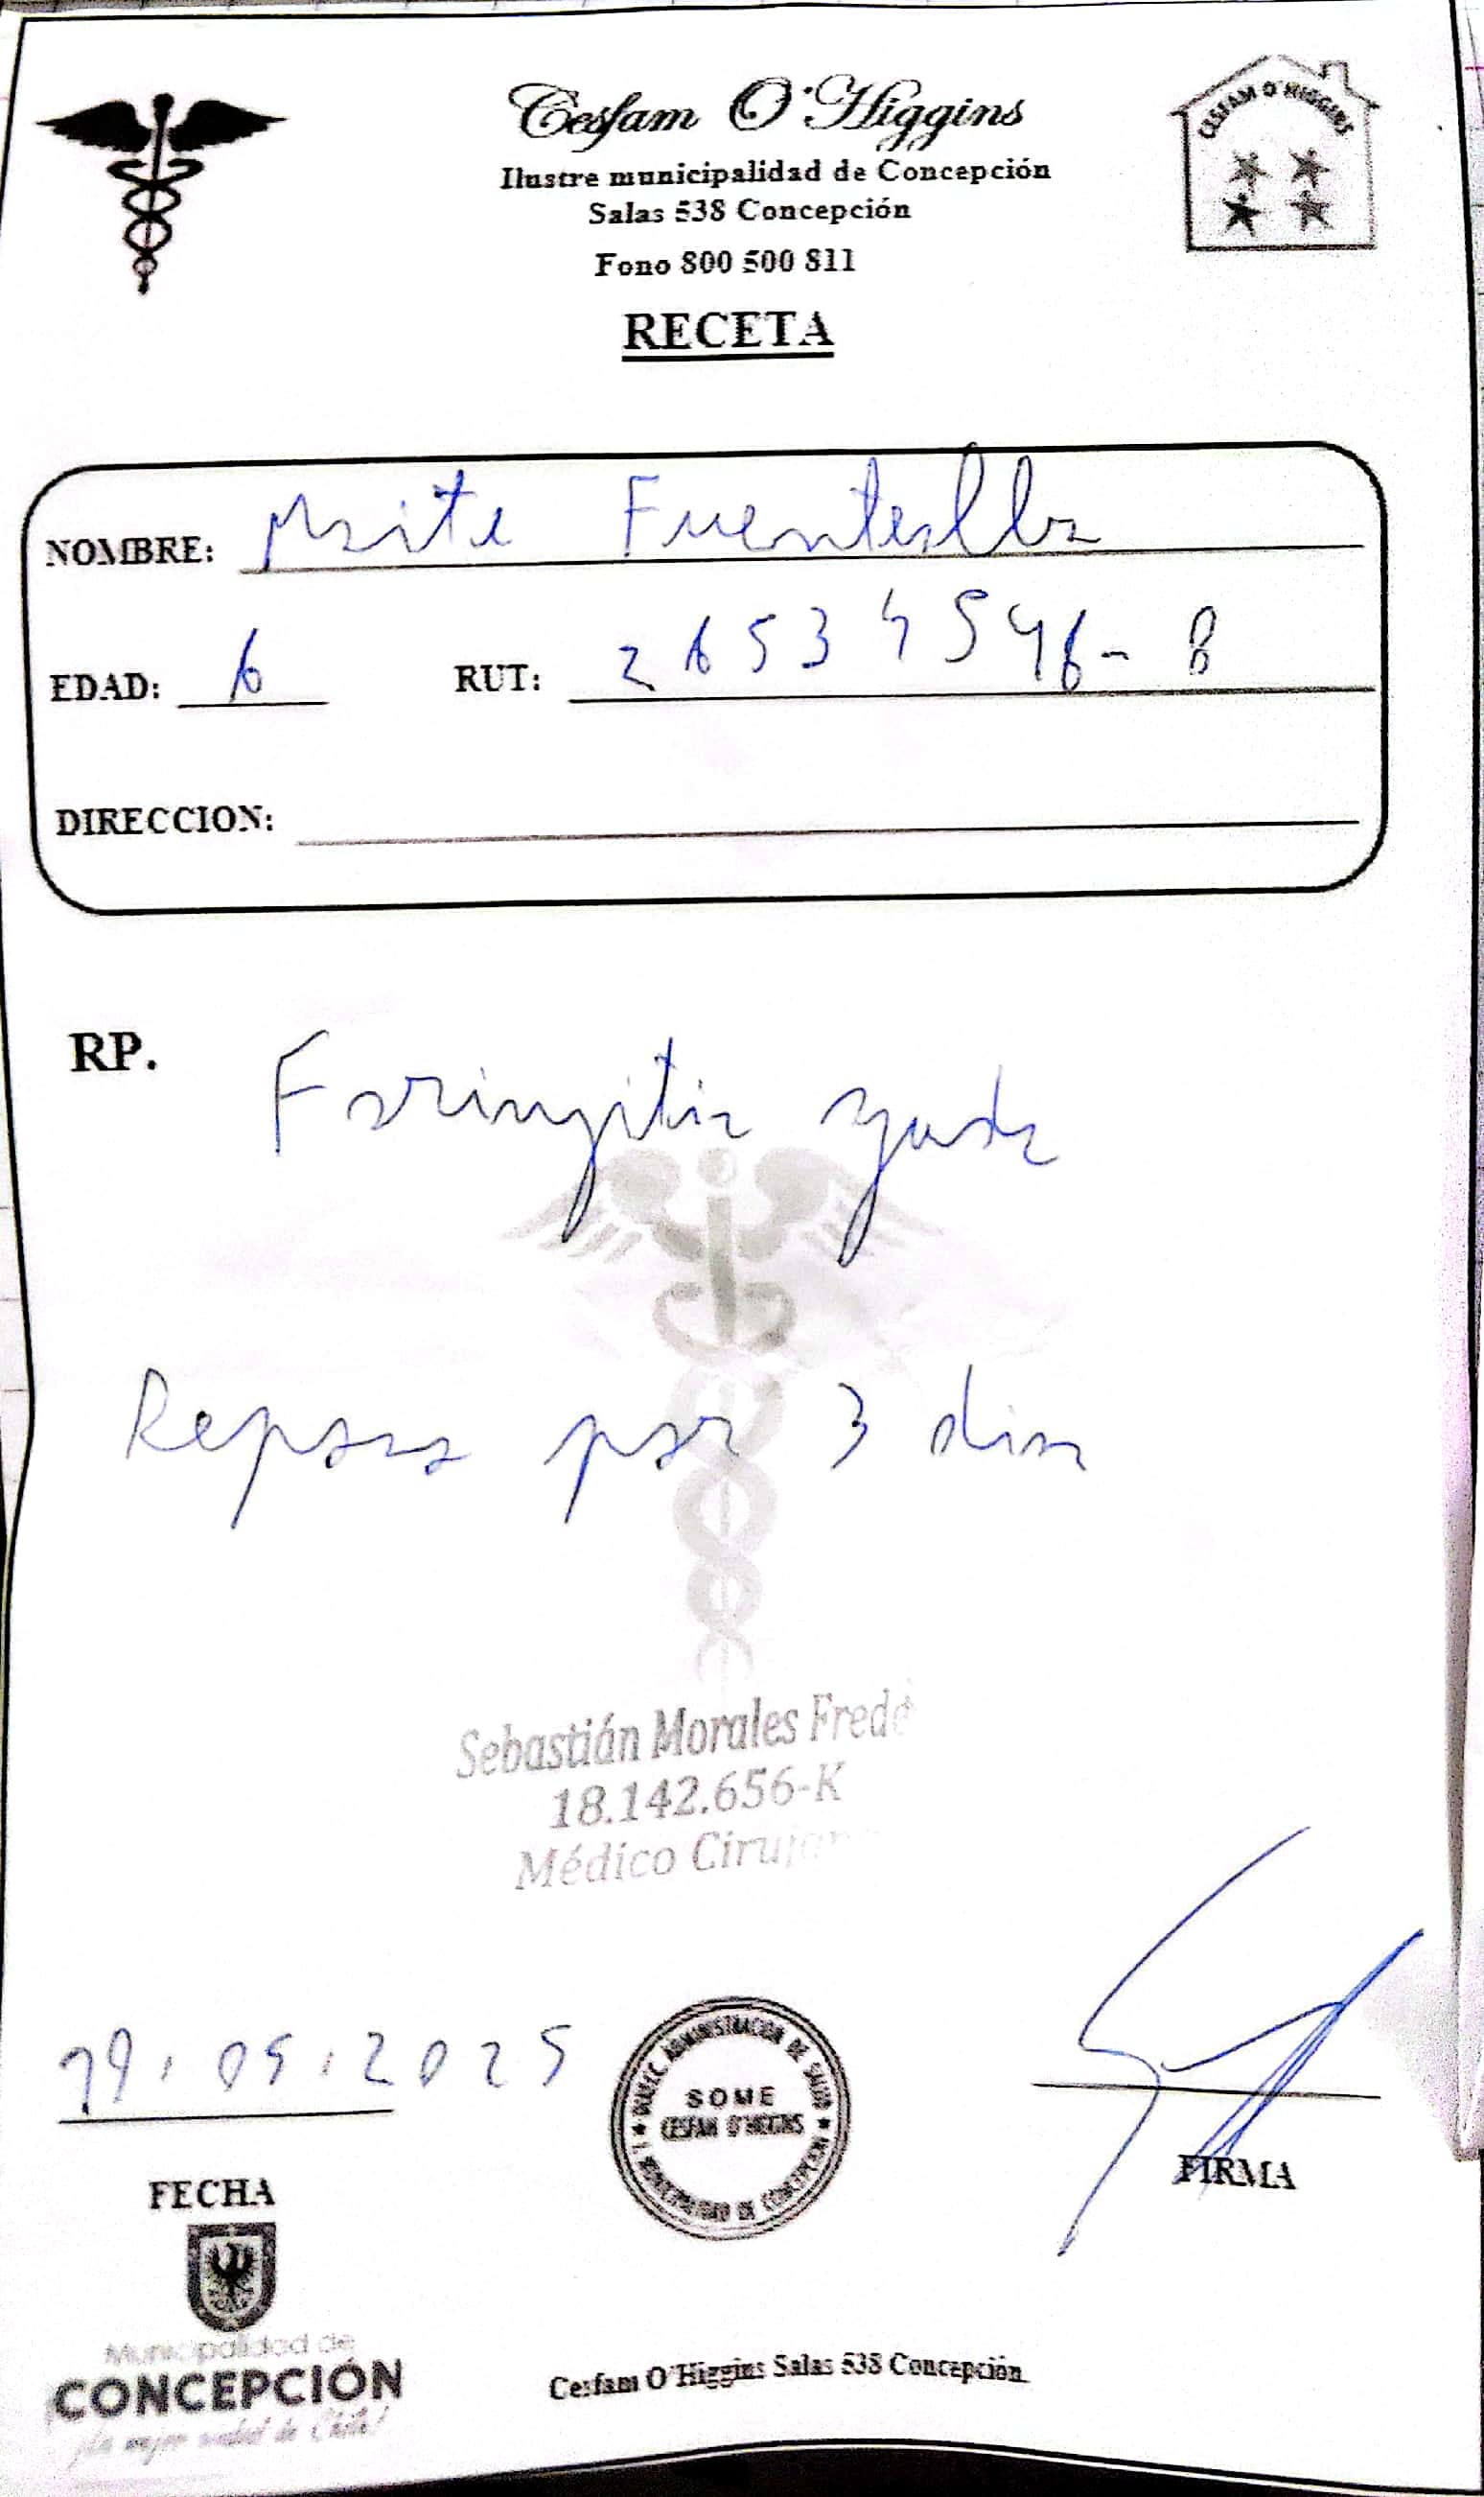 Cesfam O'Higgins
CESFAM O'HIGGINS
Ilustre municipalidad de Concepción
Salas 538 Concepción
Fono 800 500 811
RECETA
NOMBRE: Maite Fuentealba
EDAD: 6 RUT: 26534546-8
DIRECCION:
RP. Faringitis aguda
Reposo por 3 dias
Sebastián Morales
18.142.656-K
Médico Cirujano
29.05.2025
SOME
CESFAM O'HIGGINS
ADMINISTRACION DE SALUD
I. MUNICIPALIDAD DE CONCEPCION
FECHA
FIRMA
Municipalidad de
CONCEPCIÓN
¡La mejor ciudad de Chile!
Cesfam O'Higgins Salas 538 Concepción